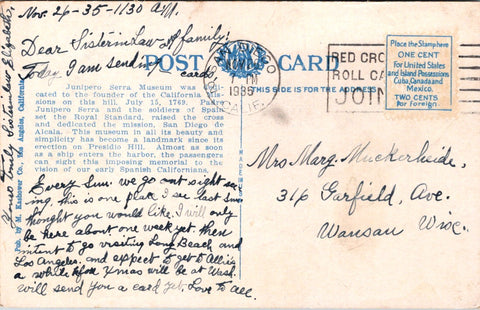 Nov. 26-35-1130 A.M.
Dear Sister in Law & family:
Today I am sending cards
POST CARD
SAN DIEGO
1 PM
1935
CALIF.
RED CRO
ROLL CA
JOIN
Place the Stamp here
ONE CENT
For United States
and Island Possessions
Cuba, Canada and
Mexico.
TWO CENTS
For Foreign
THIS SIDE IS FOR THE ADDRESS
Junipero Serra Museum was dedi-
cated to the founder of the California Mis-
sions on this hill, July 15, 1769. Padre
Junipero Serra and the soldiers of Spain
set the Royal Standard, raised the cross
and dedicated the mission, San Diego de
Alcala. This museum in all its beauty and
simplicity has become a landmark since its
erection on Presidio Hill. Almost as soon
as a ship enters the harbor, the passengers
can sight this imposing memorial to the
vision of our early Spanish Californians.
Every Sun. we go out sight see
ing, this is one place I see last Sun.
thought you would like. I will only
be here about one week yet, then
intent to go visiting Long Beach and
Los Angeles. and expect to get to Allie's
a while before Xmas will be at Wash.
will send you a card yet. Love to all.
Yours truly Sister in law Elizabeth,
Pub. by M. Kashower Co., Los Angeles, California
MADE IN
Mrs. Marg. Muckerheide,
316 Garfield, Ave.
Wausau Wisc.